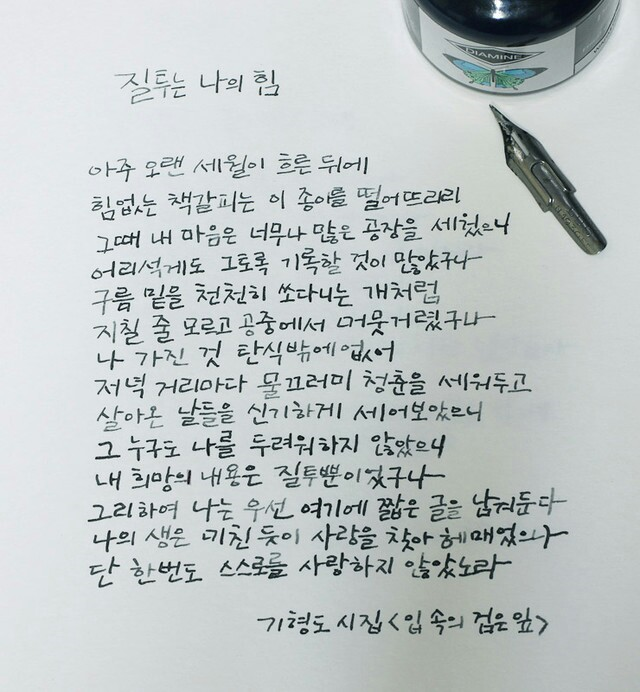 DIAMINE
질투는 나의 힘
아주 오랜 세월이 흐른 뒤에
힘없는 책갈피는 이 종이를 떨어뜨리리
그때 내 마음은 너무나 많은 공장을 세웠으니
어리석게도 그토록 기록할 것이 많았구나
구름 밑을 천천히 쏘다니는 개처럼
지칠 줄 모르고 공중에서 머뭇거렸구나
나 가진 것 탄식밖에 없어
저녁 거리마다 물끄러미 청춘을 세워두고
살아온 날들을 신기하게 세어보았으니
그 누구도 나를 두려워하지 않았으니
내 희망의 내용은 질투뿐이었구나
그리하여 나는 우선 여기에 짧은 글을 남겨둔다
나의 생은 미친 듯이 사랑을 찾아 헤매었으나
단 한번도 스스로를 사랑하지 않았노라
기형도 시집 <입 속의 검은 잎>